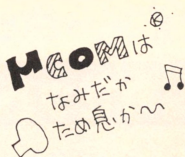 μCOMは
なみだか
ため息か〜